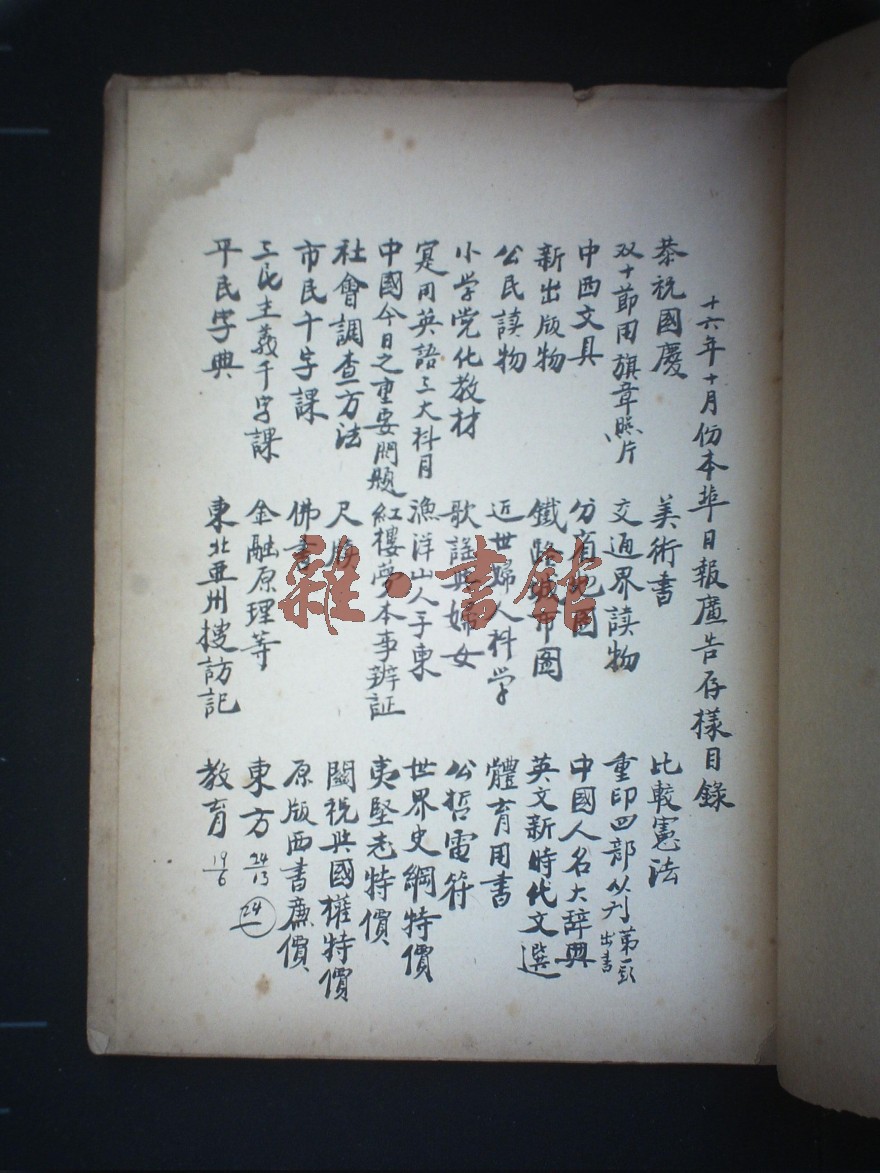 十六年十月份本埠日報廣告存樣目錄
恭祝國慶
双十節用旗章照片
中西文具
新出版物
公民读物
小学党化教材
寔用英語三大科目
中國今日之重要問題
社會調查方法
市民千字課
三民主義千字課
平民字典
美術書
交通界读物
分省地圖
鐵路城市圖
近世婦人科学
歌謡與婦女
漁洋山人手柬
紅樓夢本事辨証
尺牘
佛書
金融原理等
東北亜州搜訪記
比較憲法
重印四部丛刋第一次出書
中國人名大辞典
英文新時代文選
體育用書
公哲電符
世界史綱特價
夷堅志特價
關稅與國權特價
原版西書廉價
東方 24/13 24
教育 19/6
雜·書館